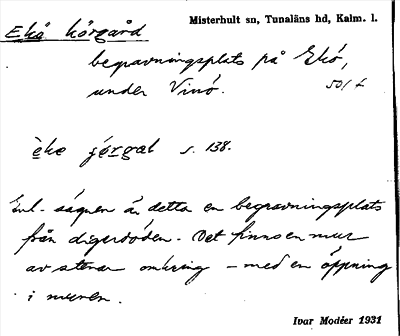 Misterhult sn, Tunaläns hd, Kalm. l.
Ekö körgård
begravningsplats på Ekö,
under Vinö. 50/
s. 138.
Enl. sägnen är detta en begravningsplats
från digerdöden. Det finns en mur
av stenar omkring – med en öppning
i muren.
Ivar Modéer 1931